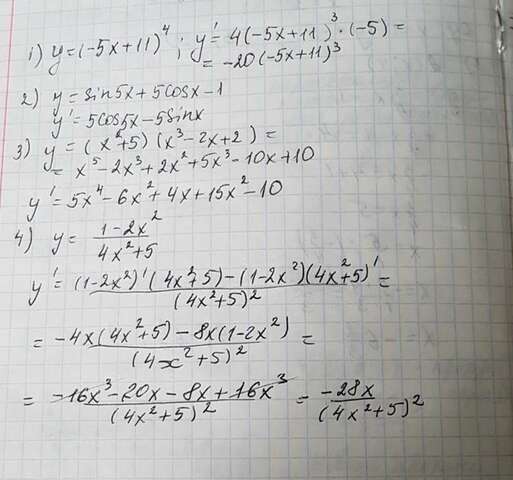 1) y=(-5x+11)⁴; y'=4(-5x+11)³·(-5)=
=-20(-5x+11)³
2) y=sin5x+5cosx-1
y'=5cos5x-5sinx
3) y=(x²+5)(x³-2x+2)=
=x⁵-2x³+2x²+5x³-10x+10
y'=5x⁴-6x²+4x+15x²-10
4) y=(1-2x²)/(4x²+5)
y'=((1-2x²)'(4x²+5)-(1-2x²)(4x²+5)')/(4x²+5)²=
=(-4x(4x²+5)-8x(1-2x²))/(4x²+5)²=
=(-16x³-20x-8x+16x³)/(4x²+5)²=(-28x)/(4x²+5)²